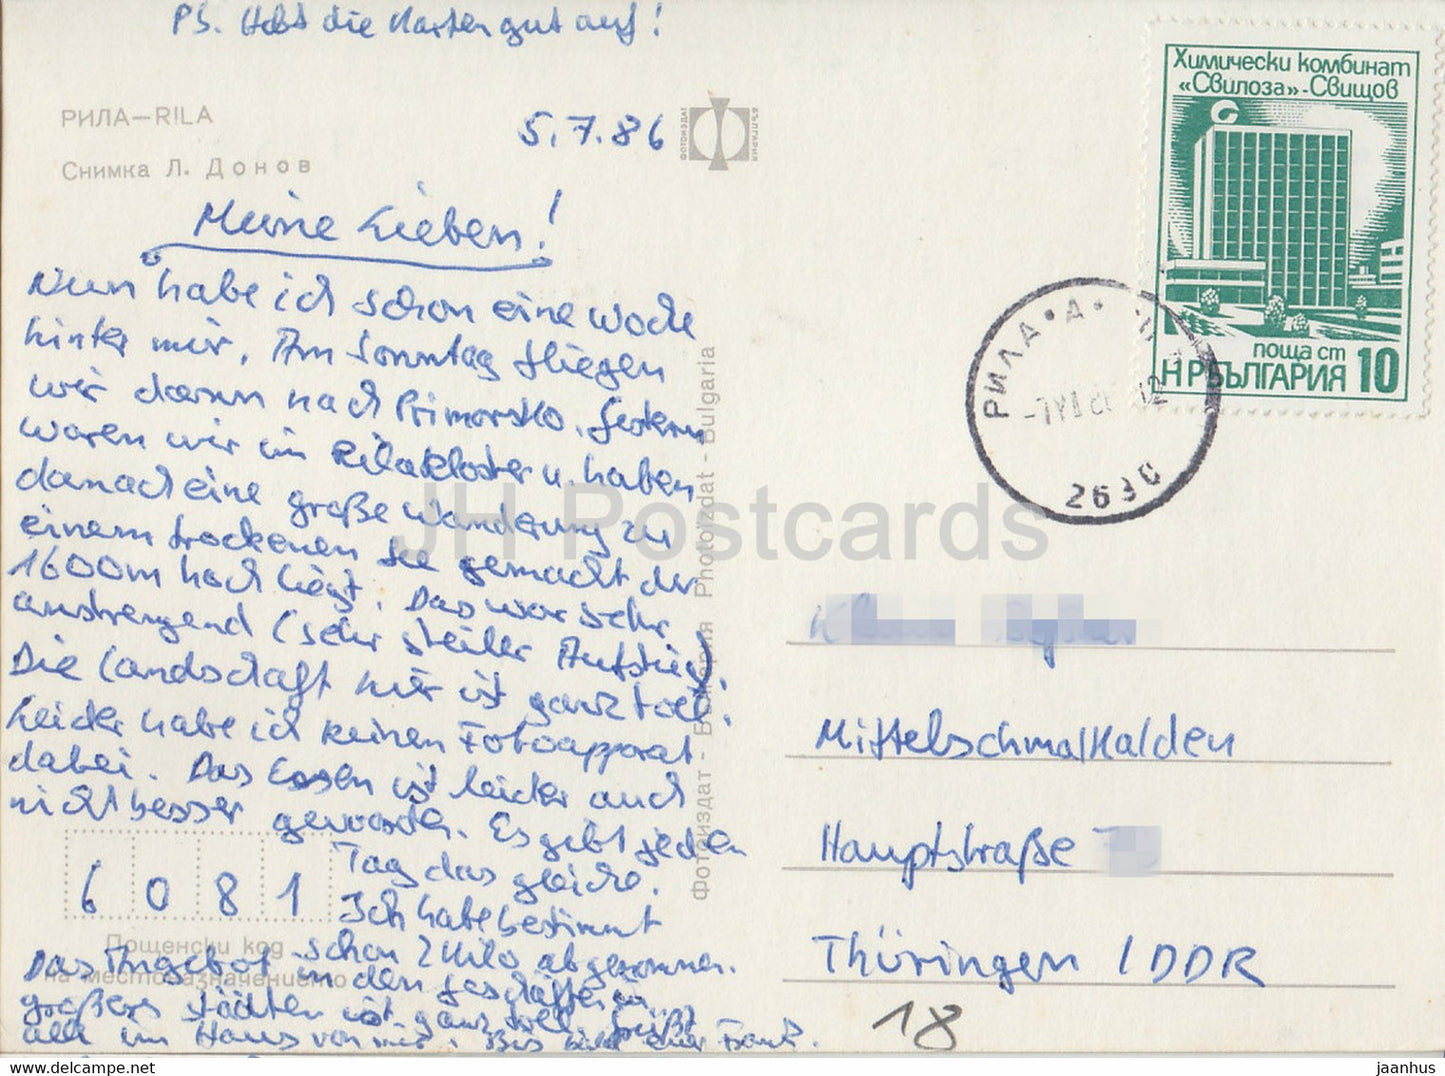 PS. Hebt die Karten gut auf!
РИЛА—RILA
Снимка Л. Донов
5.7.86
ФОТОИЗДАТ
БЪЛГАРИЯ
Meine Lieben!
Nun habe ich schon eine Woche
hinter mir. Am Sonntag fliegen
wir dann nach Primorsko. Gestern
waren wir im Rilakloster u. haben
danach eine große Wanderung zu
einem trockenen See gemacht der
1600m hoch liegt. Das war sehr
anstrengend (sehr steiler Aufstieg).
Die Landschaft hier ist ganz toll.
Leider habe ich keinen Fotoapparat
dabei. Das Essen ist leider auch
nicht besser geworden. Es gibt jeden
Tag das gleiche.
Ich habe bestimmt
schon 2 Kilo abgenommen.
Das Angebot in den Geschäften in
größeren Städten ist ganz toll. Grüßt
alle im Haus von mir. Bis bald eure
6081
Пощенски код
на местоназначението
Фотоиздат - България Photoizdat - Bulgaria
JH Postcards
Химически комбинат
«Свилоза»-Свищов
поща ст
НР БЪЛГАРИЯ 10
РИЛА
2630
Mittelschmalkalden
Hauptstraße
Thüringen / DDR
18
jaanhus